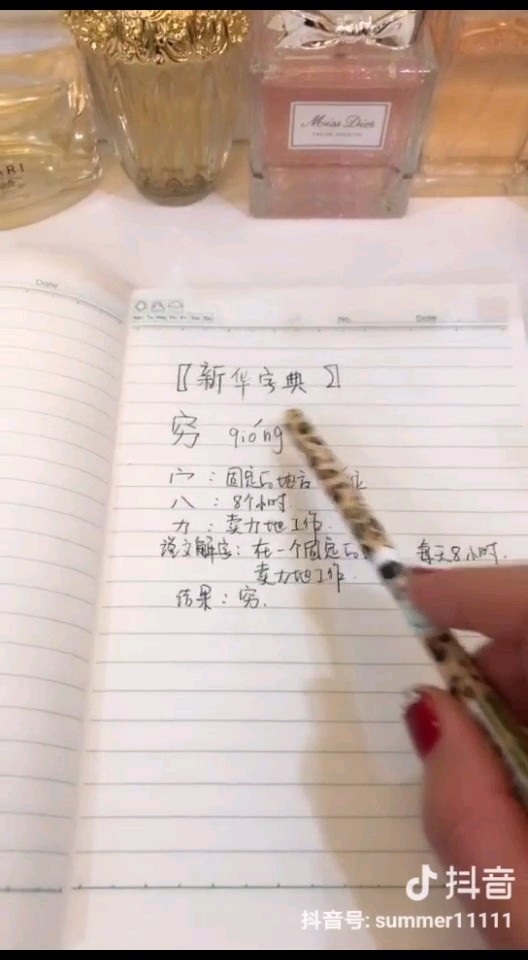 Miss Dior
EAU DE TOILETTE
Date
No.
Date
〖新华字典〗
穷 qióng
宀：固定的地方 位
八：8个小时.
力：卖力地工作.
说文解字：在一个固定的 每天8小时.
卖力地工作.
结果：穷.
抖音
抖音号: summer11111